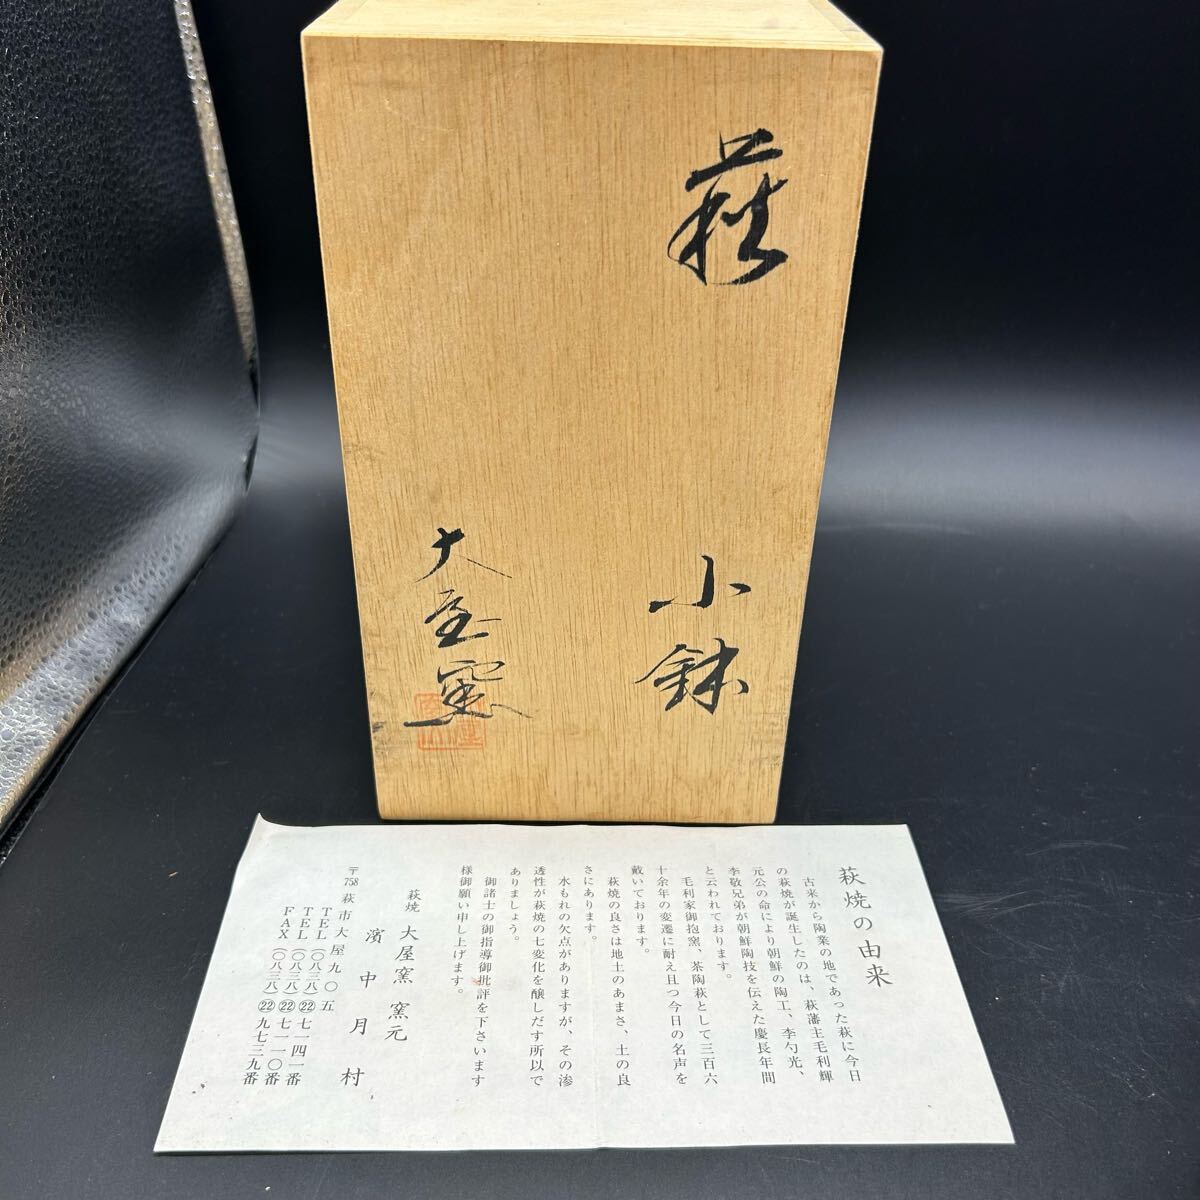 萩
小鉢
大屋窯
萩焼の由来
古来から陶業の地であった萩に今日
の萩焼が誕生したのは、萩藩主毛利輝
元公の命により朝鮮の陶工、李勺光、
李敬兄弟が朝鮮陶技を伝えた慶長年間
と云われております。
毛利家御抱窯、茶陶萩として三百六
十余年の変遷に耐え且つ今日の名声を
戴いております。
萩焼の良さは地土のあまさ、土の良
さにあります。
水もれの欠点がありますが、その滲
透性が萩焼の七変化を醸しだす所以で
ありましょう。
御諸士の御指導御批評を下さいます
様御願い申し上げます。
萩焼 大屋窯 窯元
濱中月村
〒758 萩市大屋九〇五
TEL(〇八三八)㉒七一四一番
TEL(〇八三八)㉒七一一〇番
FAX(〇八三八)㉒九七三九番